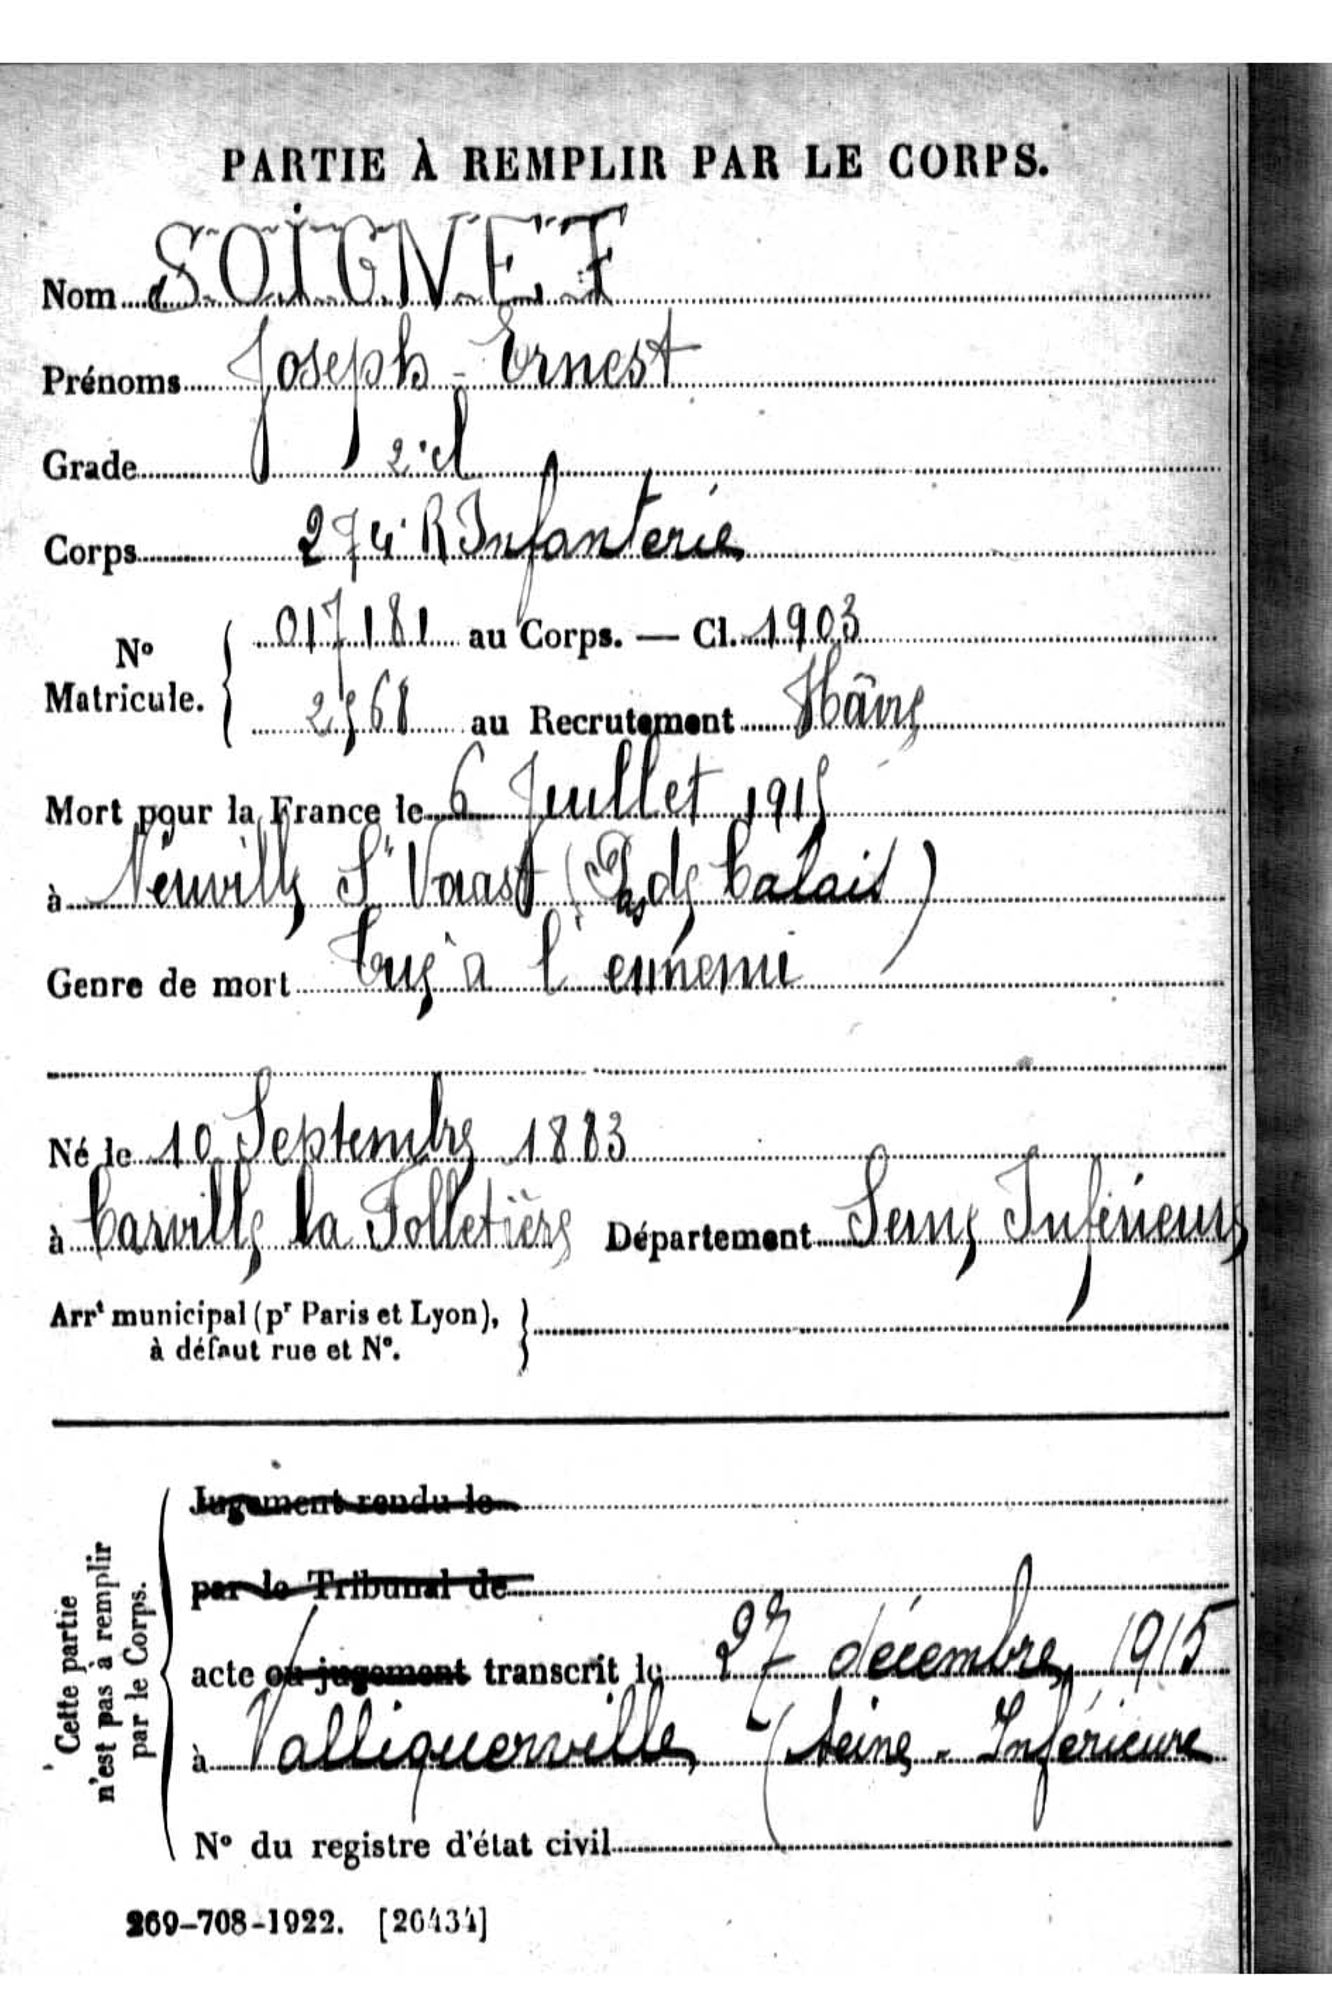 PARTIE À REMPLIR PAR LE CORPS.
Nom SOIGNET
Prénoms Joseph - Ernest
Grade 2e cl
Corps 274e R Infanterie
No Matricule. 017181 au Corps. — Cl. 1903
2568 au Recrutement Hâvre
Mort pour la France le 6 Juillet 1915
à Neuville St Vaast (Pas de Calais)
Genre de mort Tué à l'ennemi
Né le 10 Septembre 1883
à Carville la Folletière Département Seine Inférieure
Arrt municipal (pr Paris et Lyon),
à défaut rue et No.
Cette partie
n'est pas à remplir
par le Corps.
Jugement rendu le
par le Tribunal de
acte ou jugement transcrit le 27 décembre 1915
à Valliquerville (Seine - Inférieure
No du registre d'état civil
269-708-1922. [26434]